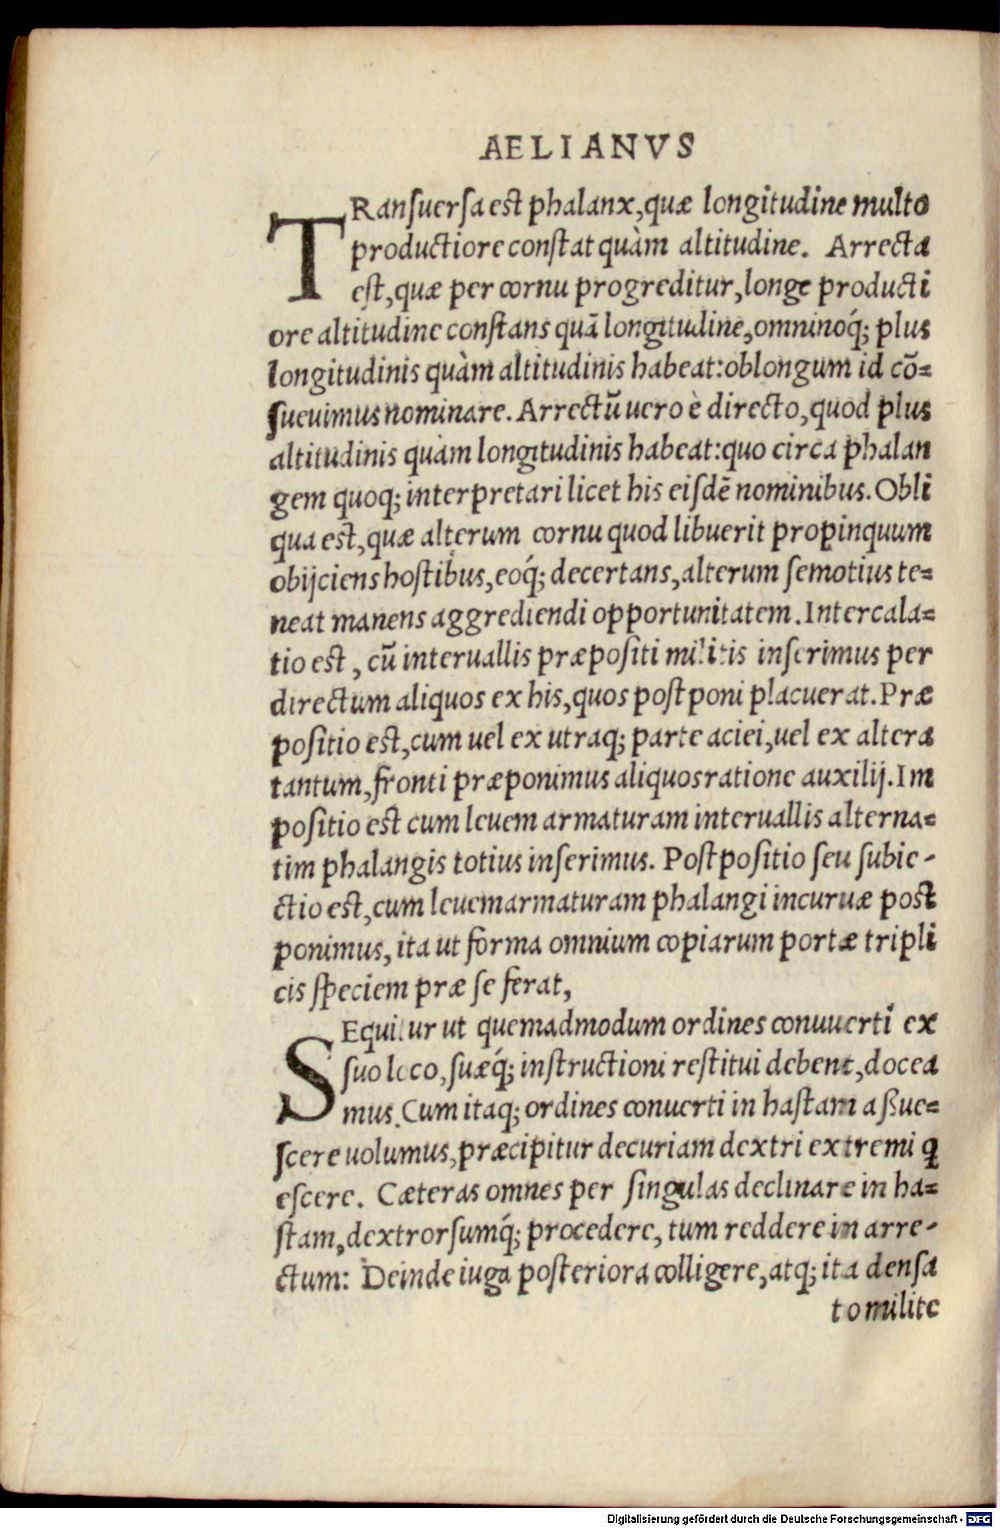 AELIANVS
TRanſuerſa est phalanx, quæ longitudine multo
productiore conſtat quàm altitudine. Arrecta
eſt, quæ per cornu progreditur, longe producti
ore altitudine conſtans quã longitudine, omninoq́; plus
longitudinis quàm altitudinis habeat: oblongum id cõ=
ſueuimus nominare. Arrectũ uero è directo, quod plus
altitudinis quàm longitudinis habeat: quo circa phalan
gem quoq; interpretari licet his eiſdẽ nominibus. Obli
qua est, quæ alterum cornu quod libuerit propinquum
obijciens hoſtibus, eoq́; decertans, alterum ſemotius te=
neat manens aggrediendi opportunitatem. Intercala=
tio est, cũ interuallis præpoſiti militis inſerimus per
directum aliquos ex his, quos poſtponi placuerat. Præ
poſitio est, cum uel ex utraq; parte aciei, uel ex altera
tantum, fronti præponimus aliquos ratione auxilij. Im
poſitio est cum leuem armaturam interuallis alterna=
tim phalangis totius inſerimus. Poſtpoſitio ſeu ſubie-
ctio est, cum leuem armaturam phalangi incuruæ post
ponimus, ita ut forma omnium copiarum portæ tripli
cis ſpeciem præ ſe ferat,
SEquitur ut quemadmodum ordines conuuerti ex
ſuo loco, ſuæq́; inſtructioni reſtitui debent, docea
mus. Cum itaq; ordines conuerti in haſtam aßue=
ſcere uolumus, præcipitur decuriam dextri extremi q
eſcere. Cæteras omnes per ſingulas declinare in ha=
ſtam, dextrorſumq́; procedere, tum reddere in arre-
ctum: Deinde iuga poſteriora colligere, atq; ita denſa
to milite
Digitalisierung gefördert durch die Deutsche Forschungsgemeinschaft - DFG